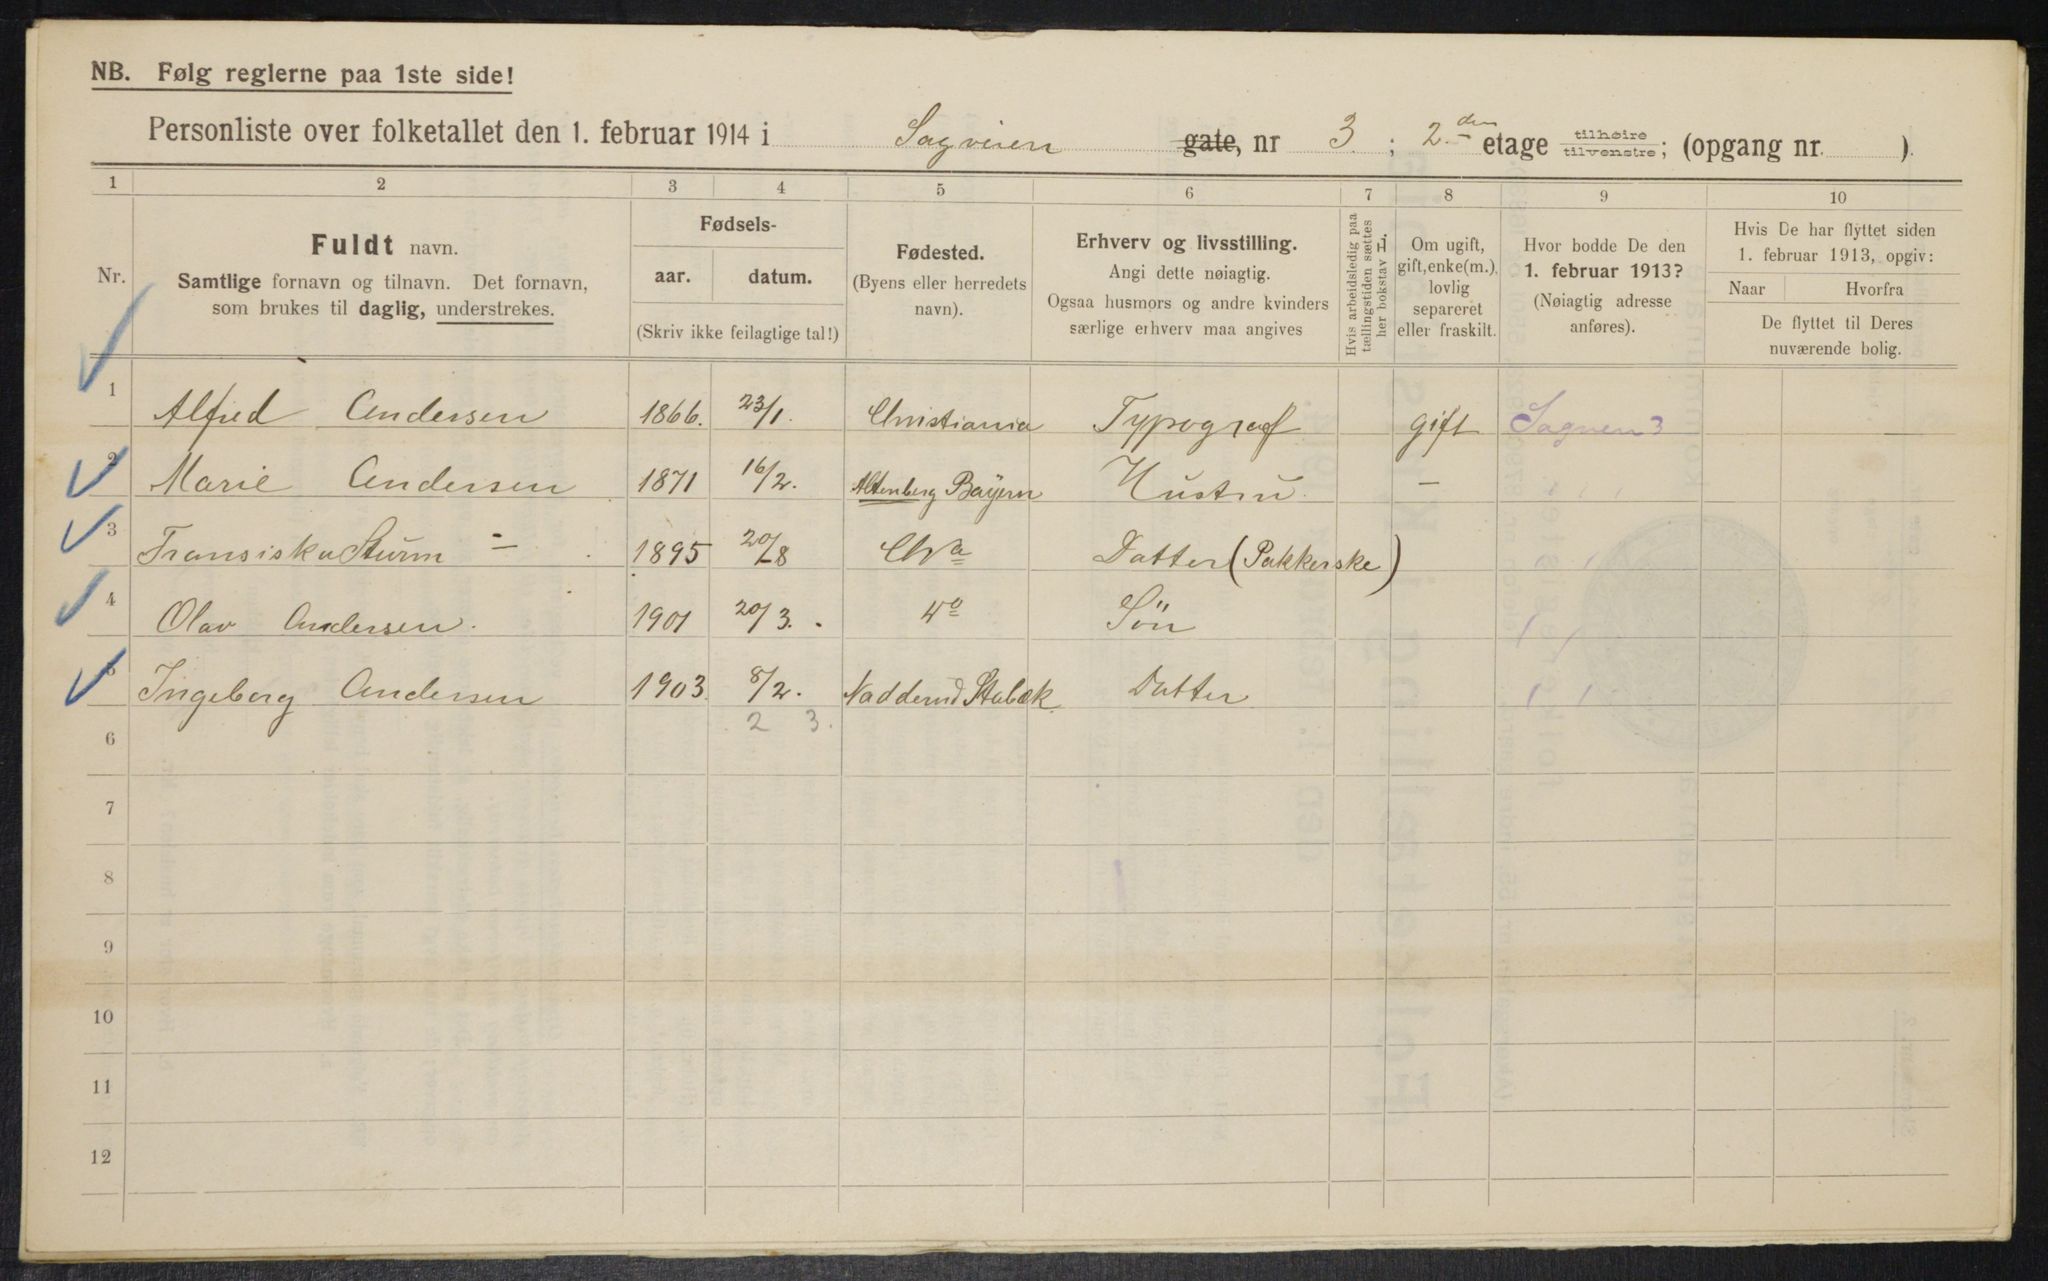 NB. Følg reglerne paa 1ste side!
Personliste over folketallet den 1. februar 1914 i Sagveien gate, nr 3 ; 2den etage tilhøire tilvenstre; (opgang nr. ).
1 2 3 4 5 6 7 8 9 10
Nr.
Fuldt navn.
Samtlige fornavn og tilnavn. Det fornavn,
som brukes til daglig, understrekes.
Fødsels-
aar. datum.
(Skriv ikke feilagtige tal!)
Fødested.
(Byens eller herredets
navn).
Erhverv og livsstilling.
Angi dette nøiagtig.
Ogsaa husmors og andre kvinders
særlige erhverv maa angives
Hvis arbeidsledig paa
tællingstiden sættes
her bokstav L.
Om ugift,
gift, enke(m.),
lovlig
separeret
eller fraskilt.
Hvor bodde De den
1. februar 1913?
(Nøiagtig adresse
anføres).
Hvis De har flyttet siden
1. februar 1913, opgiv:
Naar Hvorfra
De flyttet til Deres
nuværende bolig.
1 Alfred Andersen 1866. 23/1. Christiania Typograf gift Sagveien 3
2 Marie Andersen 1871 16/2. Altenberg Bayern Hustru. —
3 Fransiska Sturm — 1895 20/8 Chra Datter (Pakkerske)
4 Olav Andersen. 1901 20/3. do Søn
5 Ingeborg Andersen 1903. 8/2. Nadderud Stabæk. Datter
2 3.
6
7
8
9
10
11
12